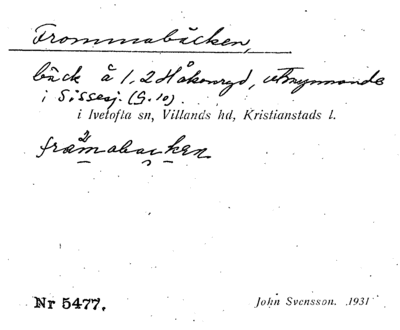 Frommabäcken,
bäck å 1, 2 Håkonryd, utmynnande
i Sissesj. (G. 10)
i Ivetofta sn, Villands hd, Kristianstads l.
Nr 5477.
John Svensson. 1931